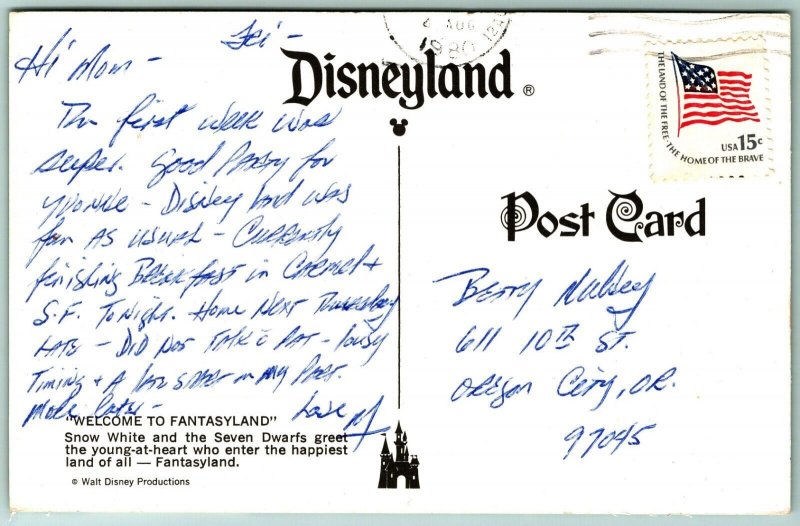 Fri -
Hi Mom -
The first week was
super. Good Party for
Yvonne - Disney land was
fun AS usual - Currently
finishing Breakfast in Carmel +
S.F. Tonight. Home Next Thursday
LATE - DID NOT TALK c̄ PAT - lousy
Timing + A late start on my Part.
More later - Love
"WELCOME TO FANTASYLAND"
Snow White and the Seven Dwarfs greet
the young-at-heart who enter the happiest
land of all — Fantasyland.
© Walt Disney Productions
Disneyland ®
Post Card
AUG
1980
THE LAND OF THE FREE · THE HOME OF THE BRAVE
USA 15c
Betty
611 10TH ST.
Oregon City, OR.
97045